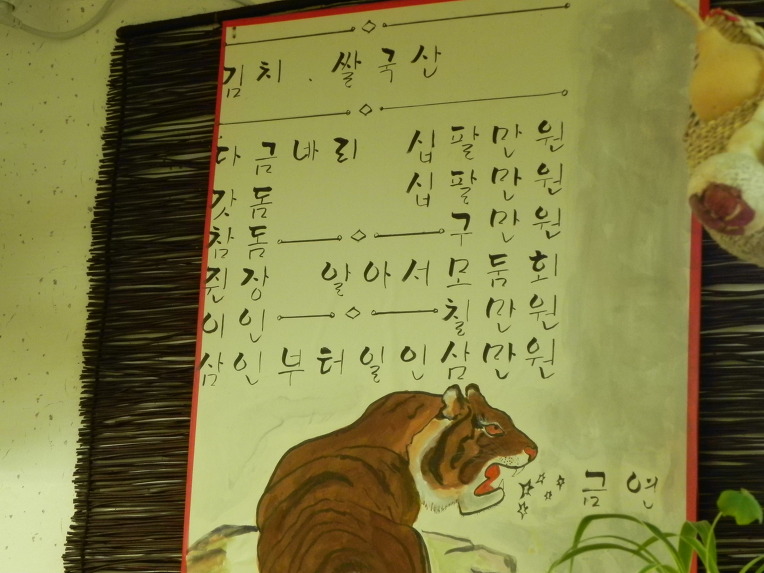 김치 . 쌀국산
다금바리 십팔만원
갓돔 십팔만원
참돔 구만원
쥔장 알아서 모둠회
이인 칠만원
삼인부터일인삼만원
금연